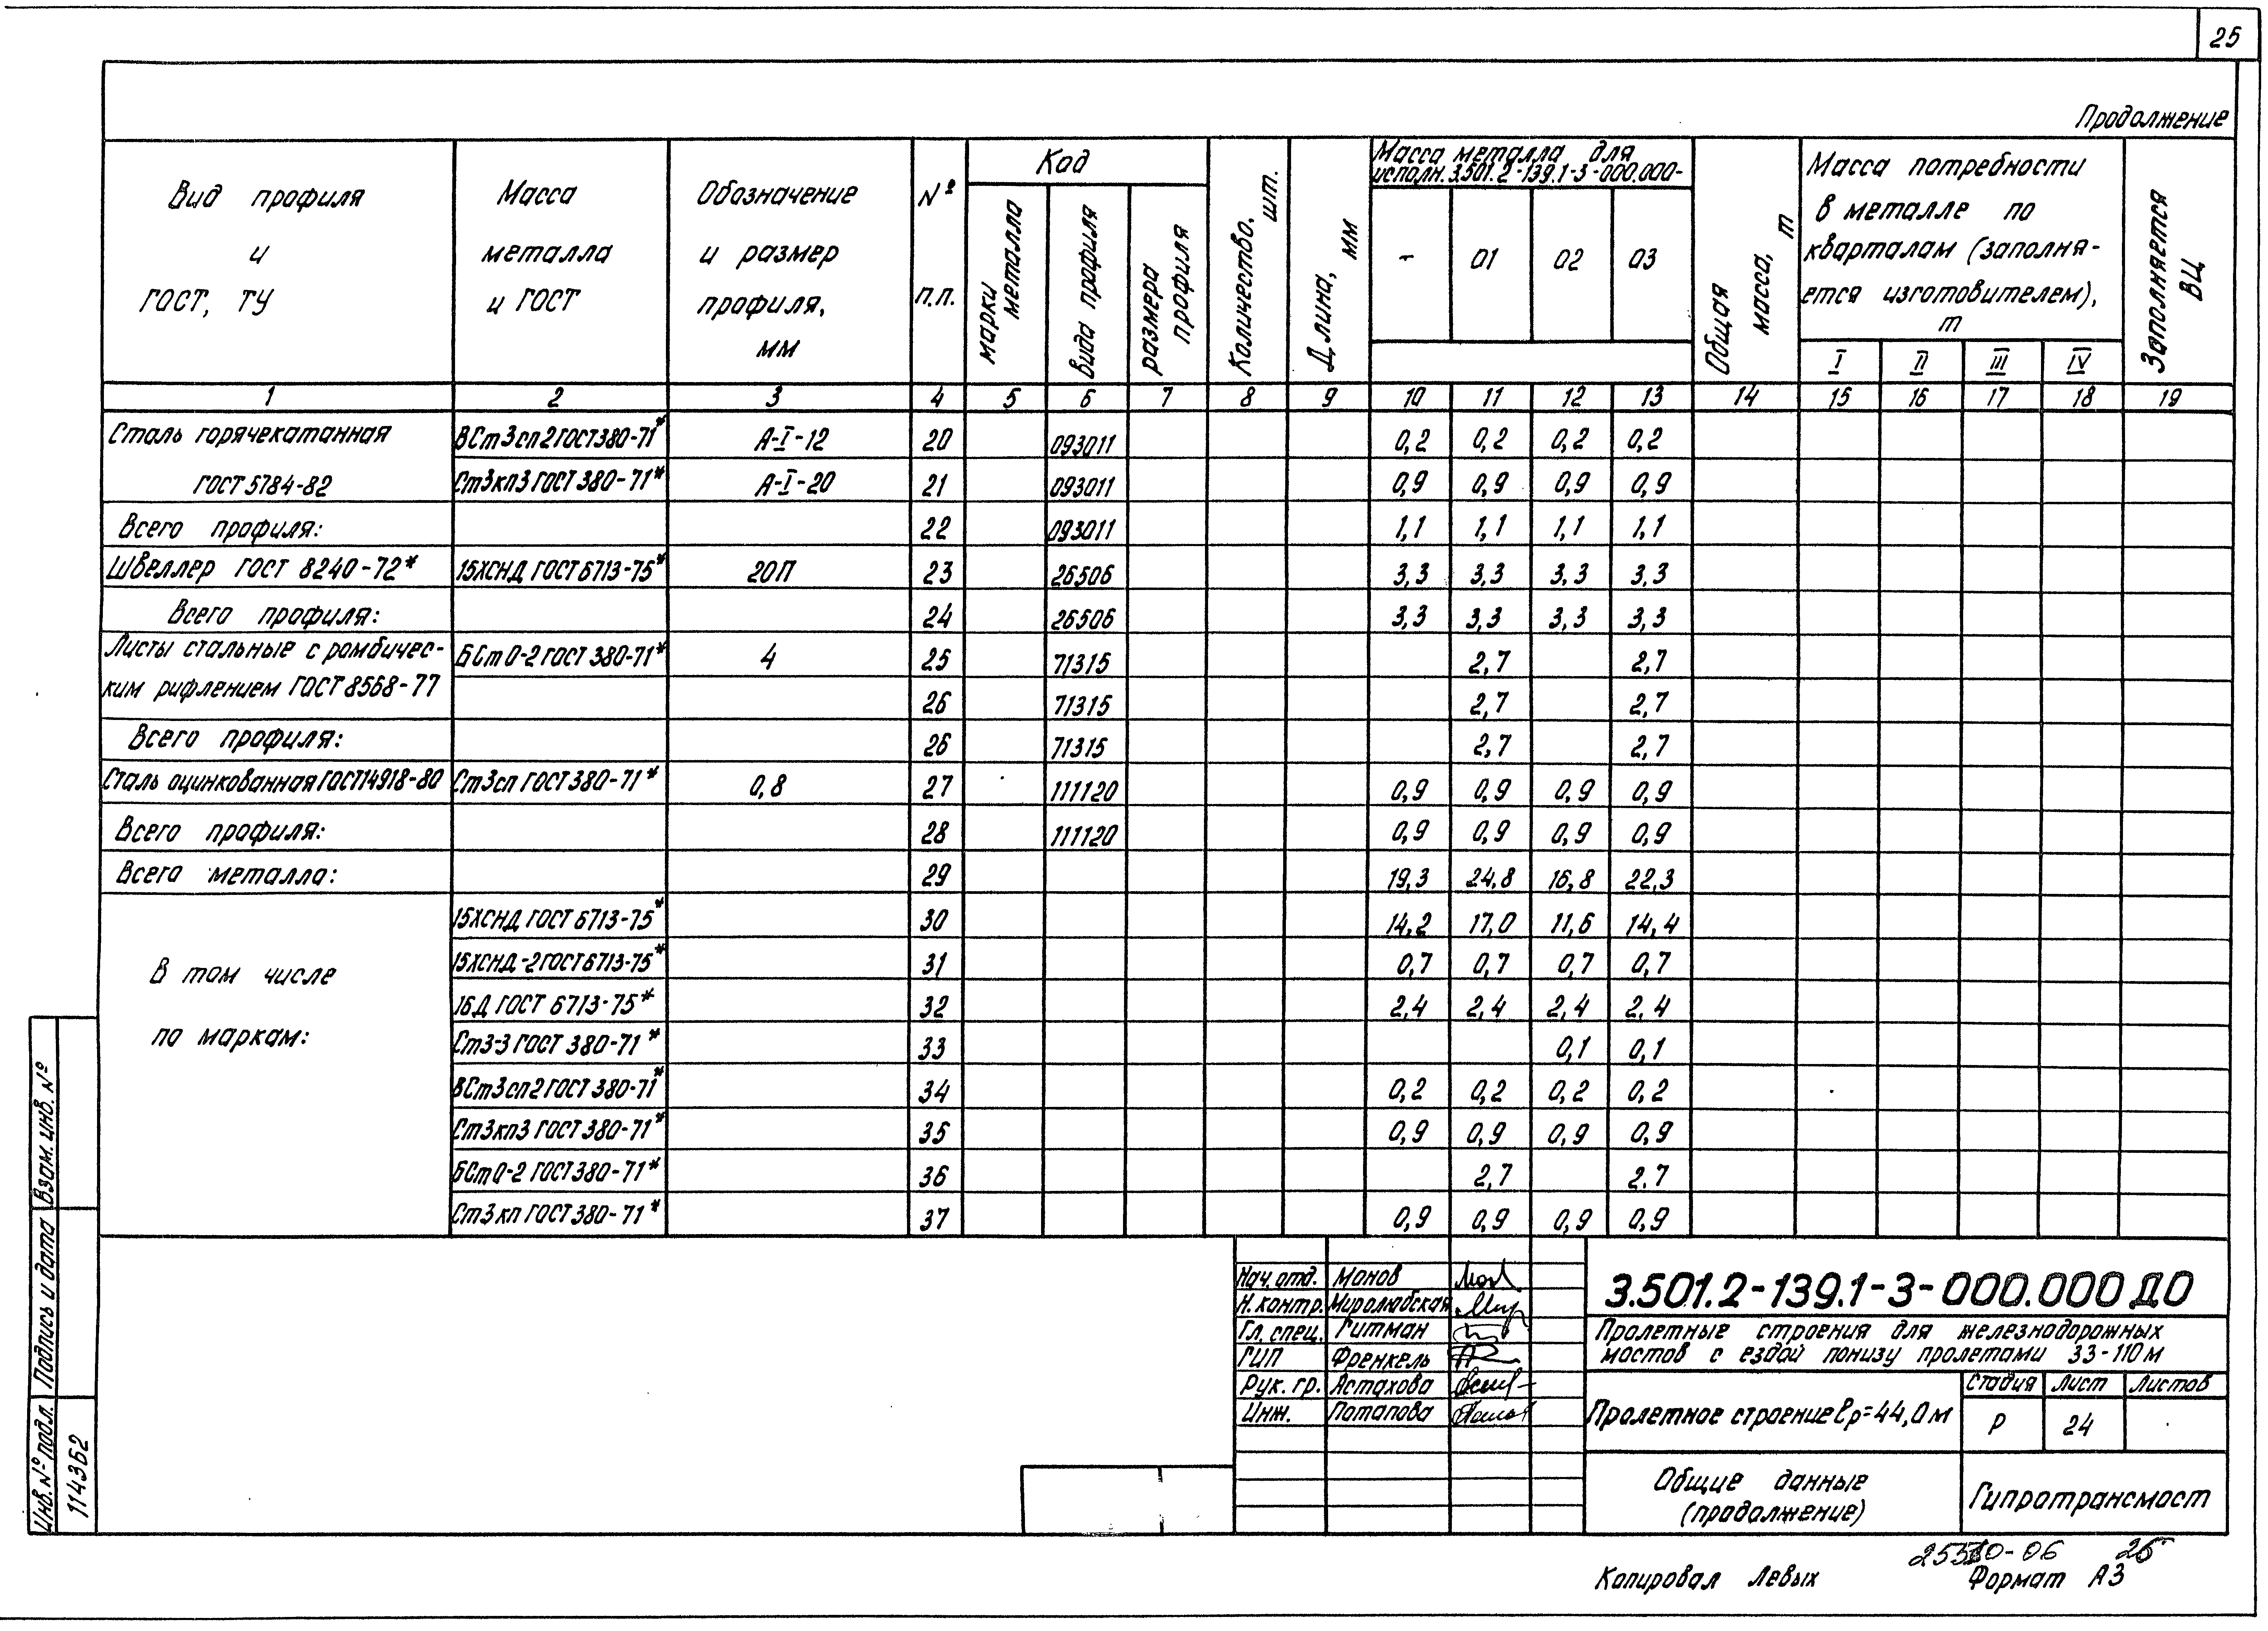 25
Продолжение
Вид профиля и ГОСТ, ТУ
Масса металла и ГОСТ
Обозначение и размер профиля, мм
№ п.п.
Код
марки металла
вида профиля
размера профиля
Количество, шт.
Длина, мм
Масса металла для исполн. 3.501.2-139.1-3-000.000-
- 01 02 03
Общая масса, т
Масса потребности в металле по кварталам (заполняется изготовителем), т
I II III IV
Заполняется ВЦ
1 2 3 4 5 6 7 8 9 10 11 12 13 14 15 16 17 18 19
Сталь горячекатанная ВСт3сп2 ГОСТ 380-71* А-I-12 20 093011 0,2 0,2 0,2 0,2
ГОСТ 5784-82 Ст3кп3 ГОСТ 380-71* А-I-20 21 093011 0,9 0,9 0,9 0,9
Всего профиля: 22 093011 1,1 1,1 1,1 1,1
Швеллер ГОСТ 8240-72* 15ХСНД ГОСТ 6713-75* 20П 23 26506 3,3 3,3 3,3 3,3
Всего профиля: 24 26506 3,3 3,3 3,3 3,3
Листы стальные с ромбичес- БСт0-2 ГОСТ 380-71* 4 25 71315 2,7 2,7
ким рифлением ГОСТ 8568-77 26 71315 2,7 2,7
Всего профиля: 26 71315 2,7 2,7
Сталь оцинкованная ГОСТ 14918-80 Ст3сп ГОСТ 380-71* 0,8 27 111120 0,9 0,9 0,9 0,9
Всего профиля: 28 111120 0,9 0,9 0,9 0,9
Всего металла: 29 19,3 24,8 16,8 22,3
15ХСНД ГОСТ 6713-75* 30 14,2 17,0 11,6 14,4
В том числе 15ХСНД-2 ГОСТ 6713-75* 31 0,7 0,7 0,7 0,7
16Д ГОСТ 6713-75* 32 2,4 2,4 2,4 2,4
по маркам: Ст3-3 ГОСТ 380-71* 33 0,1 0,1
ВСт3сп2 ГОСТ 380-71* 34 0,2 0,2 0,2 0,2
Ст3кп3 ГОСТ 380-71* 35 0,9 0,9 0,9 0,9
БСт0-2 ГОСТ 380-71* 36 2,7 2.7
Ст3кп ГОСТ 380-71* 37 0,9 0,9 0,9 0,9
Взам. инв. №
Подпись и дата
Инв. № подл.
114362
Нач. отд. Монов
Н. контр. Миролюбская
Гл. спец. Гитман
ГИП Френкель
Рук. гр. Астахова
Инж. Потапова
3.501.2-139.1-3-000.000 ДО
Пролетные строения для железнодорожных
мостов с ездой понизу пролетами 33-110 м
Пролетное строение lр=44,0 м
Стадия Лист Листов
Р 24
Общие данные
(продолжение)
Гипротрансмост
Копировал Левых Формат А3